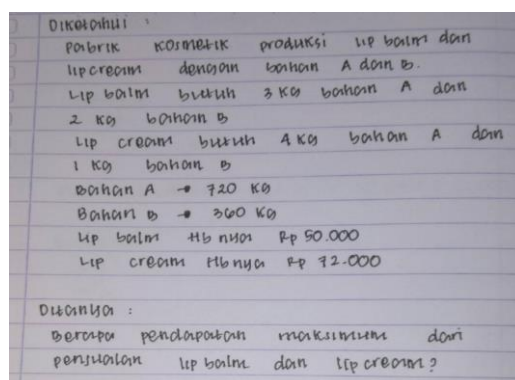 Diketahui :
Pabrik kosmetik produksi lip balm dan
lipcream dengan bahan A dan B.
Lip balm butuh 3 kg bahan A dan
2 kg bahan B
Lip cream butuh 4 kg bahan A dan
1 kg bahan B
Bahan A → 720 kg
Bahan B → 360 kg
Lip balm Hb nya Rp 50.000
Lip cream Hb nya Rp 72.000
Ditanya :
Berapa pendapatan maksimum dari
penjualan lip balm dan lip cream?